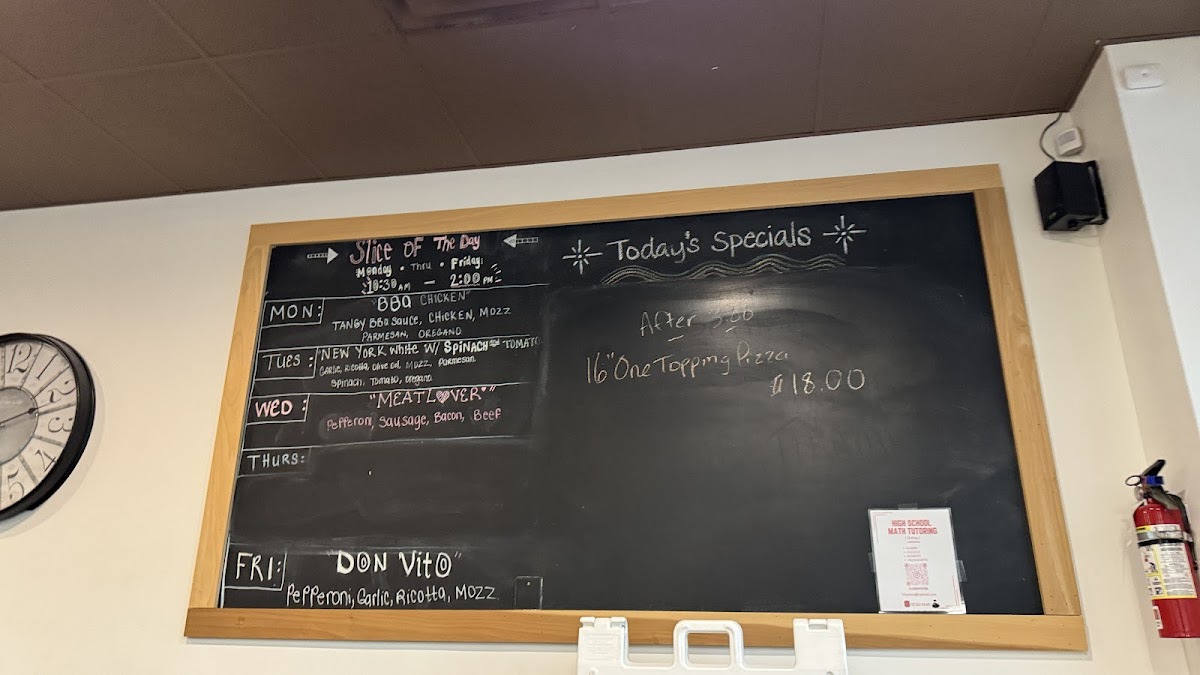 Slice OF The Day
Monday • Thru • Friday:
10:30 AM — 2:00 PM
MON:
"BBQ CHICKEN"
TANGY BBQ SAUCE, CHICKEN, MOZZ
PARMESAN, OREGANO
TUES:
"NEW YORK White W/ SPINACH and TOMATO
Garlic, Ricotta, Olive oil, MOZZ, Parmesan,
Spinach, Tomato, Oregano
WED:
"MEATLOVER"
Pepperoni, Sausage, Bacon, Beef
THURS:
FRI:
DON VITO"
Pepperoni, Garlic, Ricotta, MOZZ
Today's Specials
After
16" One Topping Pizza
$18.00
HIGH SCHOOL
MATH TUTORING
12
1
2
3
4
5